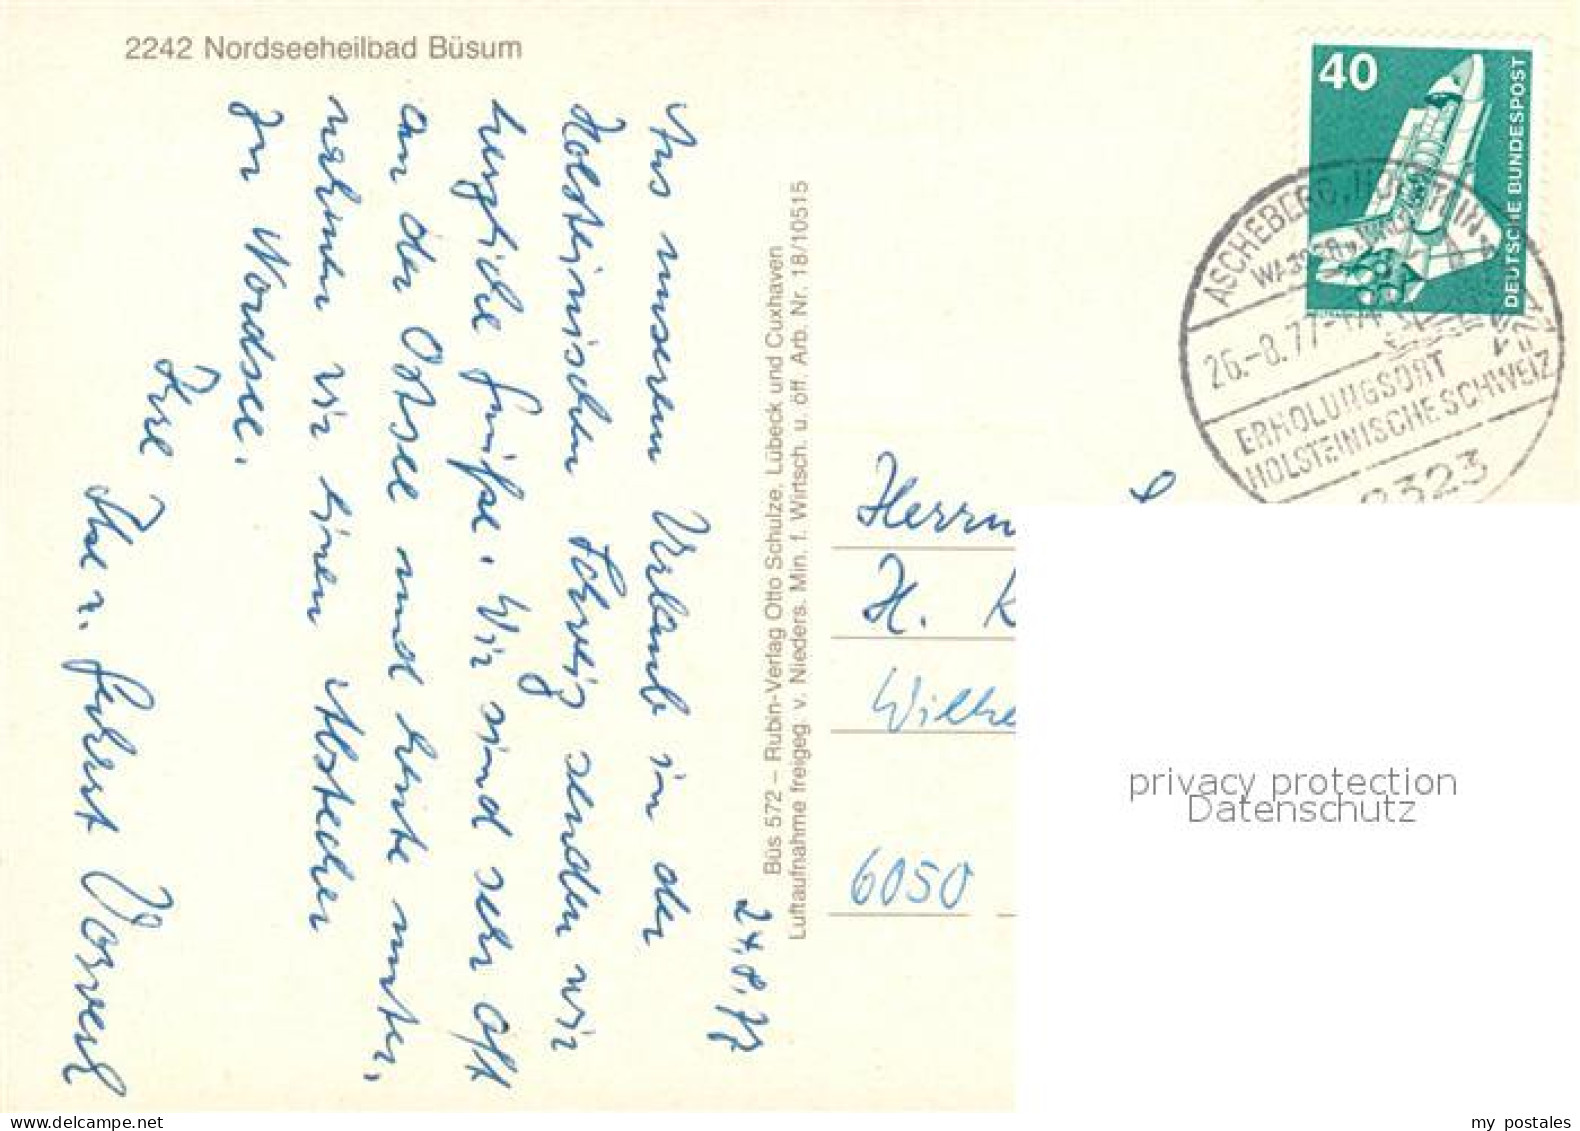 2242 Nordseeheilbad Büsum
24.8.77
Aus unserem Urlaub in der
Holsteinischen Schweiz senden wir
herzliche Grüße. Wir sind sehr oft
an der Ostsee und heute unter-
nehmen wir einen Abstecher
zur Nordsee.
Ihre
Gerhart
Büs 572 – Rubin-Verlag Otto Schulze, Lübeck und Cuxhaven
Luftaufnahme freigeg. v. Nieders. Min. f. Wirtsch. u. öff. Arb. Nr. 18/10515
40
DEUTSCHE BUNDESPOST
ASCHEBERG, HOLSTEIN
26.-8.77-
ERHOLUNGSORT
HOLSTEINISCHE SCHWEIZ
2323
Herrn
H. K
Wilhe
6050
privacy protection
Datenschutz
my postales